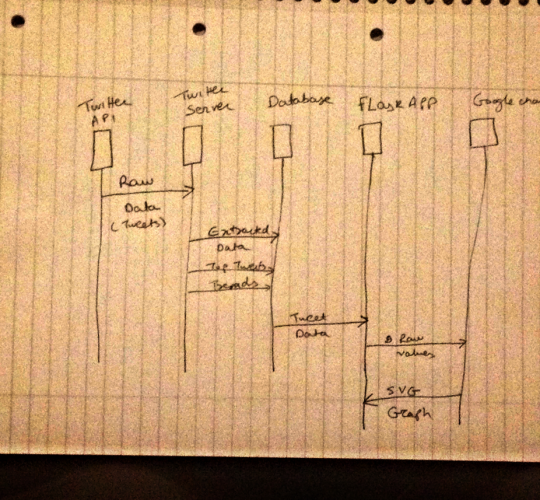 Twitter
API
Twitter
Server
Database
Flask APP
Google cha
Raw
Data
(Tweets)
Extracted
Data
Top Tweets
Trends
Tweet
Data
Raw
values
SVG
Graph